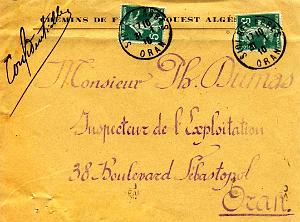 CHEMINS DE F OUEST ALGÉ
Confidentielle
5 5
ORAN ORAN
Monsieur Th. Dumas
Inspecteur de l'Exploitation
38 Boulevard Sébastopol
Oran.